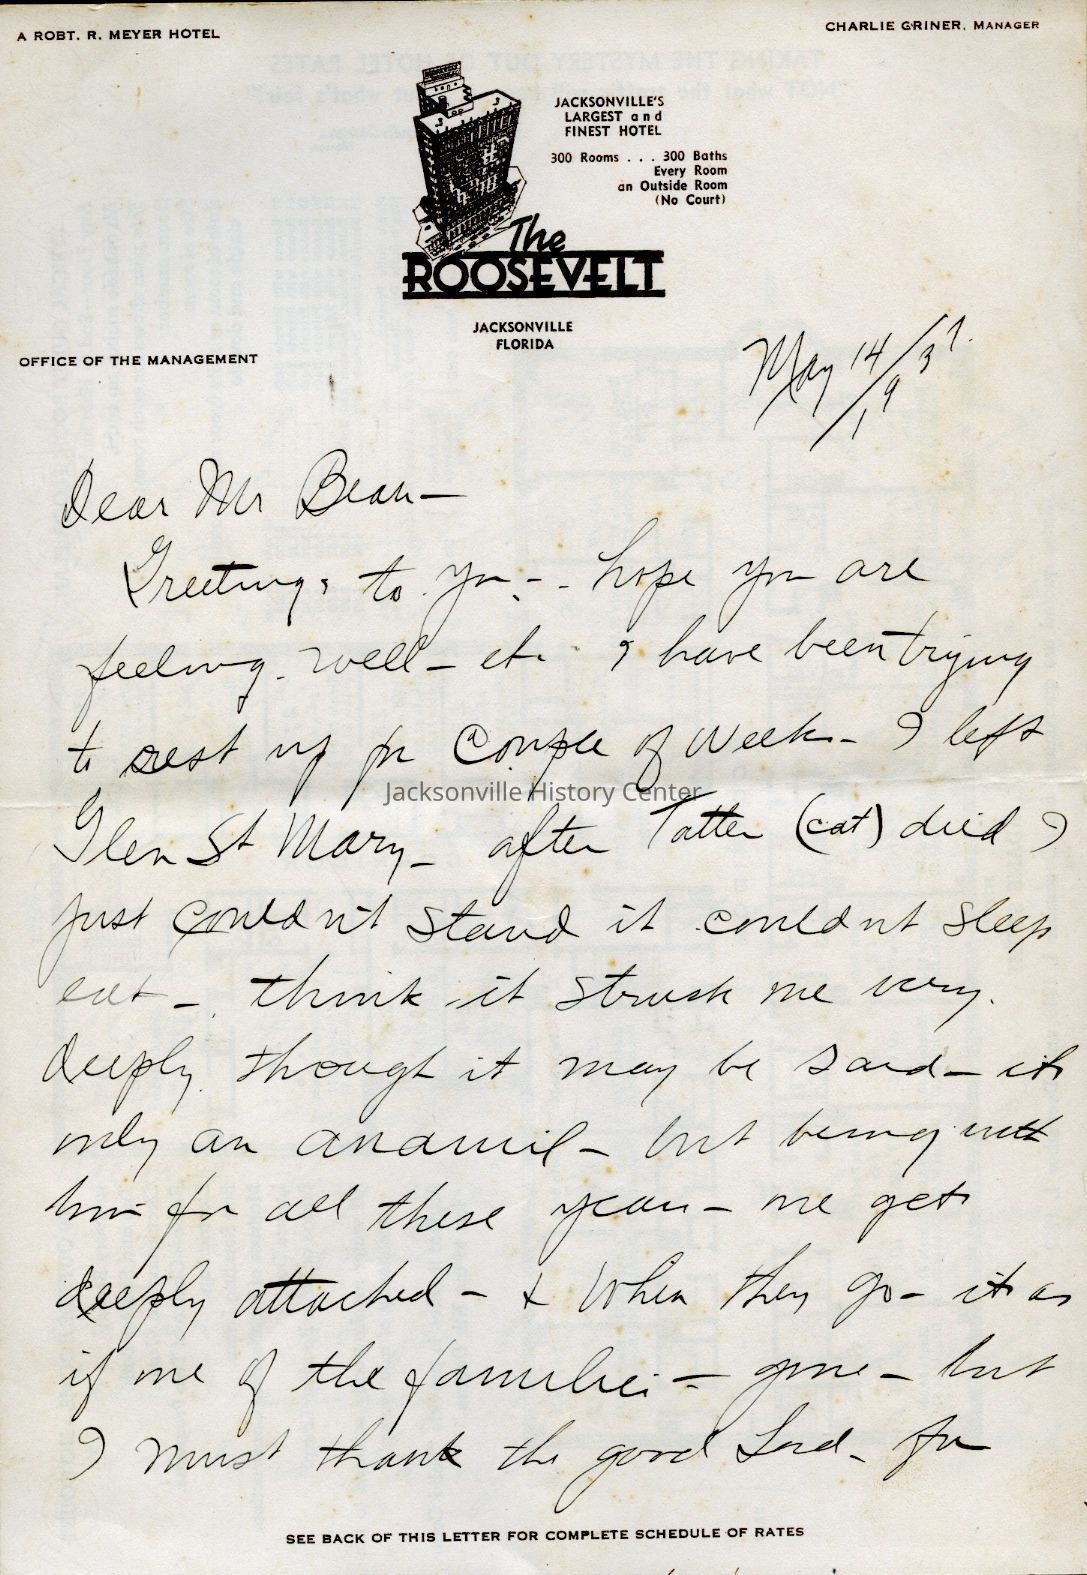 A ROBT. R. MEYER HOTEL
CHARLIE GRINER, MANAGER
JACKSONVILLE'S
LARGEST and
FINEST HOTEL
300 Rooms . . . 300 Baths
Every Room
an Outside Room
(No Court)
The
ROOSEVELT
JACKSONVILLE
FLORIDA
OFFICE OF THE MANAGEMENT
May 14/1937.
Dear Mr Bean—
Greetings to you - - hope you are
feeling well - etc. I have been trying
to rest up for Couple of Weeks - I left
Jacksonville History Center
Glen St Mary - after Tatter (cat) died I
just couldn't stand it couldnt sleep
eat - think it struck me very
deeply though it may be said - its
only an anamil - but being with
him for all these years - one gets
deeply attached - & When they go - its as
if one of the families - gone - but
I must thank the good Lord - for
SEE BACK OF THIS LETTER FOR COMPLETE SCHEDULE OF RATES